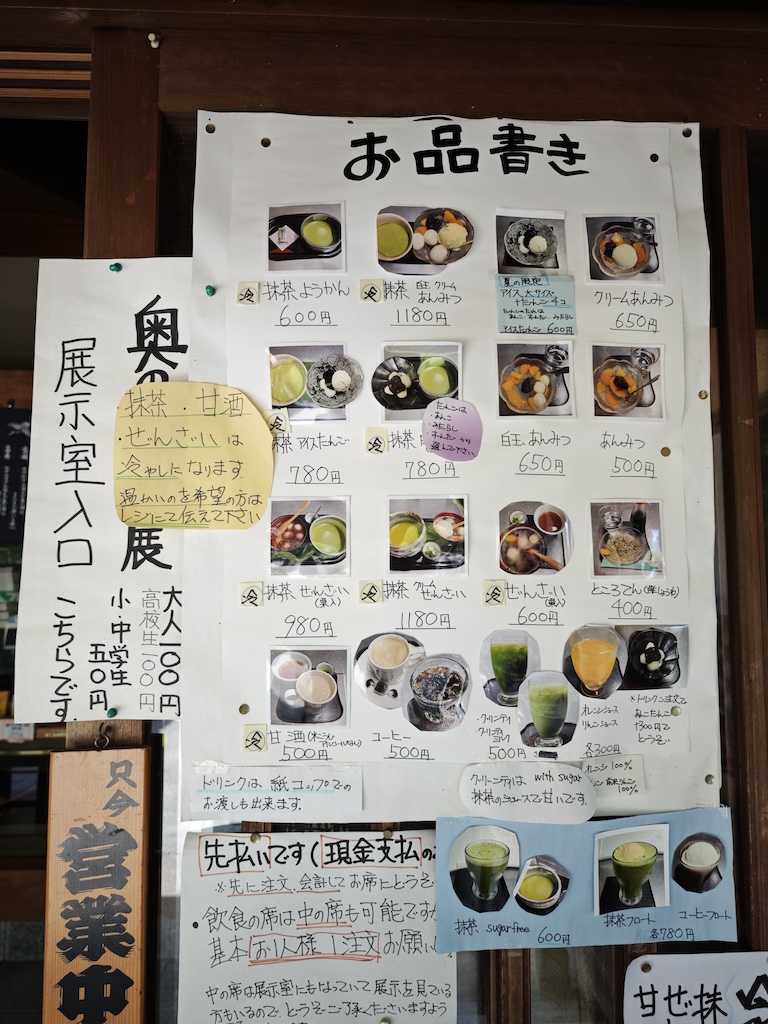 お品書き
冷 抹茶 ようかん
600円
冷 抹茶 白玉 クリーム
あんみつ
1180円
夏の限定
アイス 大サイズ
+だんご千コ
アイスだんご 600円
クリームあんみつ
650円
抹茶 アイスだんご
780円
冷 抹茶
780円
だんごは
・あんこ
・みたらし
・ずんだ から
選んで下さい
白玉 あんみつ
650円
あんみつ
500円
冷 抹茶 ぜんざい
(栗入)
980円
冷 抹茶 クリーム
ぜんざい
1180円
冷 ぜんざい
(栗入)
600円
ところてん
400円
冷 甘酒
500円
コーヒー
500円
・グリンティ
500円
オレンジジュース
りんごジュース
各300円
※ドリンクご注文で
あんこだんご
+300円で
どうぞ
オレンジ100%
100%
ドリンクは 紙コップでの
お渡しも出来ます.
グリーンティは with sugar
抹茶のジュースで甘いです。
抹茶 sugar free 600円
抹茶フロート
コーヒーフロート
各780円
奥の
展
展示室入口 こちらです。
大人 一〇〇円
高校生 一〇〇円
小・中学生
五〇円
・抹茶・甘酒
・ぜんざい は
冷やしになります.
温かいのを希望の方は
レジにて伝えて下さい
只今
営業中
先払いです(現金支払の
※先に注文、会計して お席にどうぞ
飲食の席は中の席も可能ですが
基本 お1人様 1注文 お願い
中の席は展示室にもなっていて 展示を見ている
方もいるので、どうぞご了承くださいますよう
抹
ぜ
甘